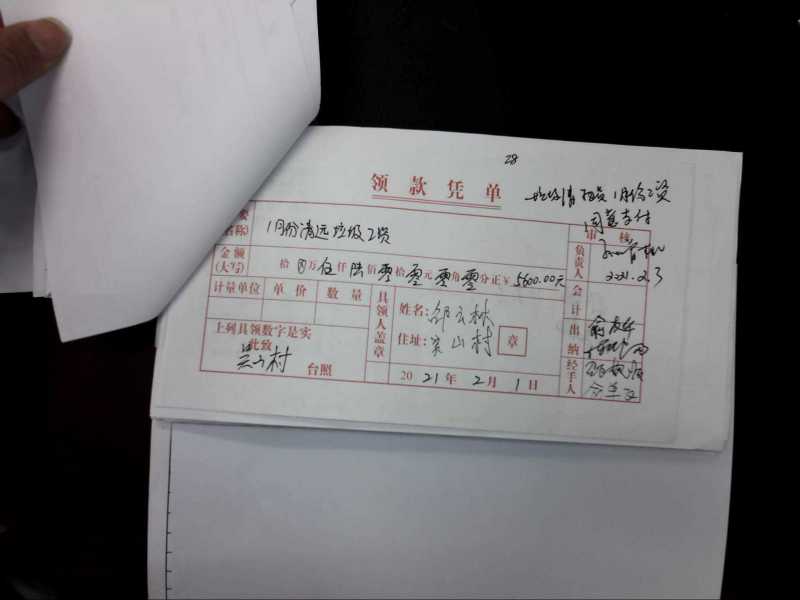 28
领款凭单
垃圾清 1月份工资
同意支付
名称) 1月份清远垃圾工资
审核
金额(大写) 拾 万伍仟陆佰零拾零元零角零分正¥5600.00元
负责人
2021.2.3
计量单位 单价 数量
具领人盖章
姓名: 邵云林
住址: 吴山村 章
会计
上列具领数字是实
此致
吴山村 台照
出纳
2021年2月1日
经手人